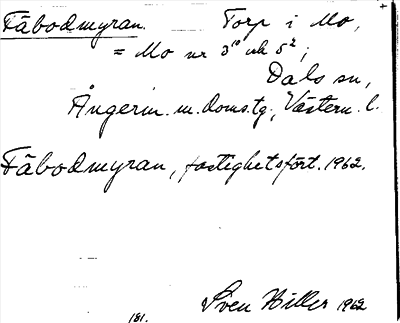 Fäbodmyran. Torp i Mo,
= Mo nr 3¹⁰ och 5²;
Dals sn,
Ångerm. m. doms.tg., Västern. l.
Fäbodmyran, fastighetsfört. 1962.
Sven Hiller 1962
181.